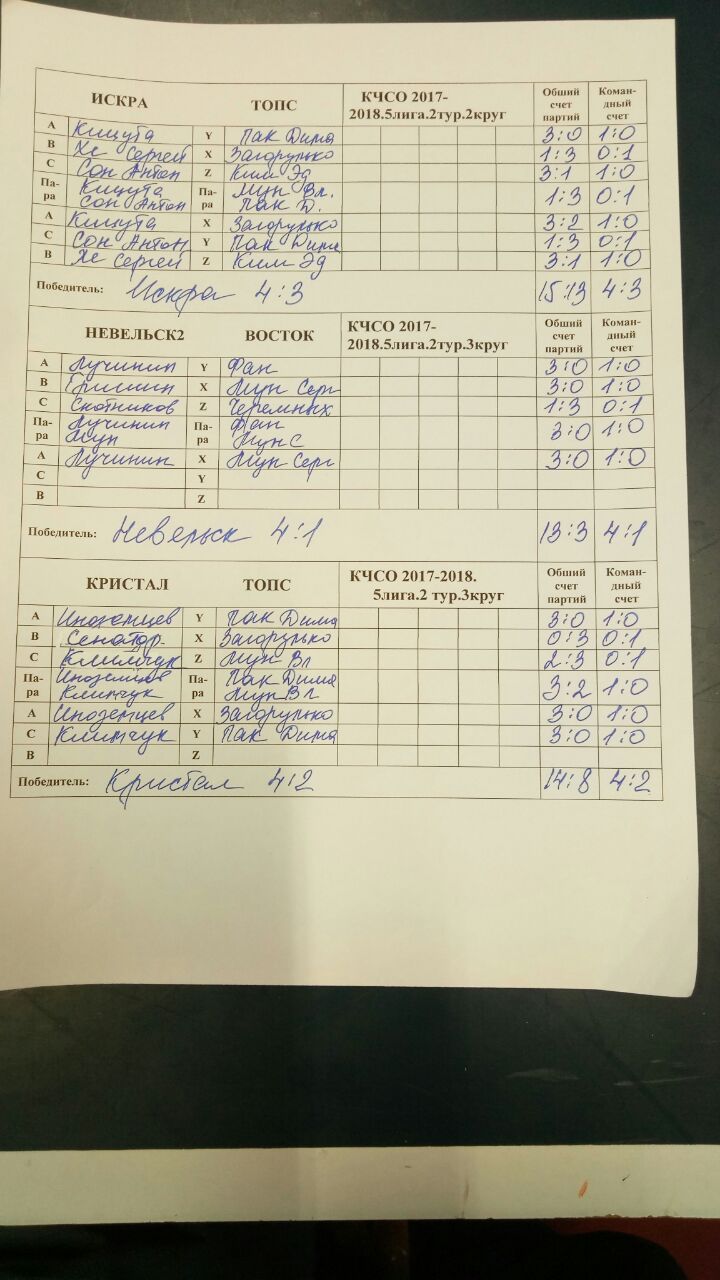 ИСКРА ТОПС КЧСО 2017- Обший Коман-
2018.5лига.2тур.2круг счет дный
партий счет
А Кицута Y Пак Дима 3:0 1:0
В Хе Сергей X Загорулько 1:3 0:1
С Сон Антон Z Ким Эд 3:1 1:0
Па- Кицута Па- Мун Вл. 1:3 0:1
ра Сон Антон ра Пак Д.
А Кицута X Загорулько 3:2 1:0
С Сон Антон Y Пак Дима 1:3 0:1
В Хе Сергей Z Ким Эд 3:1 1:0
Победитель: Искра 4:3 15:13 4:3
НЕВЕЛЬСК2 ВОСТОК КЧСО 2017- Обший Коман-
2018.5лига.2тур.3круг счет дный
партий счет
А Лучинин Y Фан 3:0 1:0
В Гришин X Мун Серг 3:0 1:0
С Скотников Z Черемных 1:3 0:1
Па- Лучинин Па- Фан 3:0 1:0
ра Мун ра Мун С
А Лучинин X Мун Серг 3:0 1:0
С Y
В Z
Победитель: Невельск 4:1 13:3 4:1
КРИСТАЛ ТОПС КЧСО 2017-2018. Обший Коман-
5лига.2 тур.3круг счет дный
партий счет
А Иноземцев Y Пак Дима 3:0 1:0
В Сенатор. X Загорулько 0:3 0:1
С Климчук Z Мун Вл 2:3 0:1
Па- Иноземцев Па- Пак Дима 3:2 1:0
ра Климчук ра Мун Вл
А Иноземцев X Загорулько 3:0 1:0
С Климчук Y Пак Дима 3:0 1:0
В Z
Победитель: Кристал 4:2 14:8 4:2